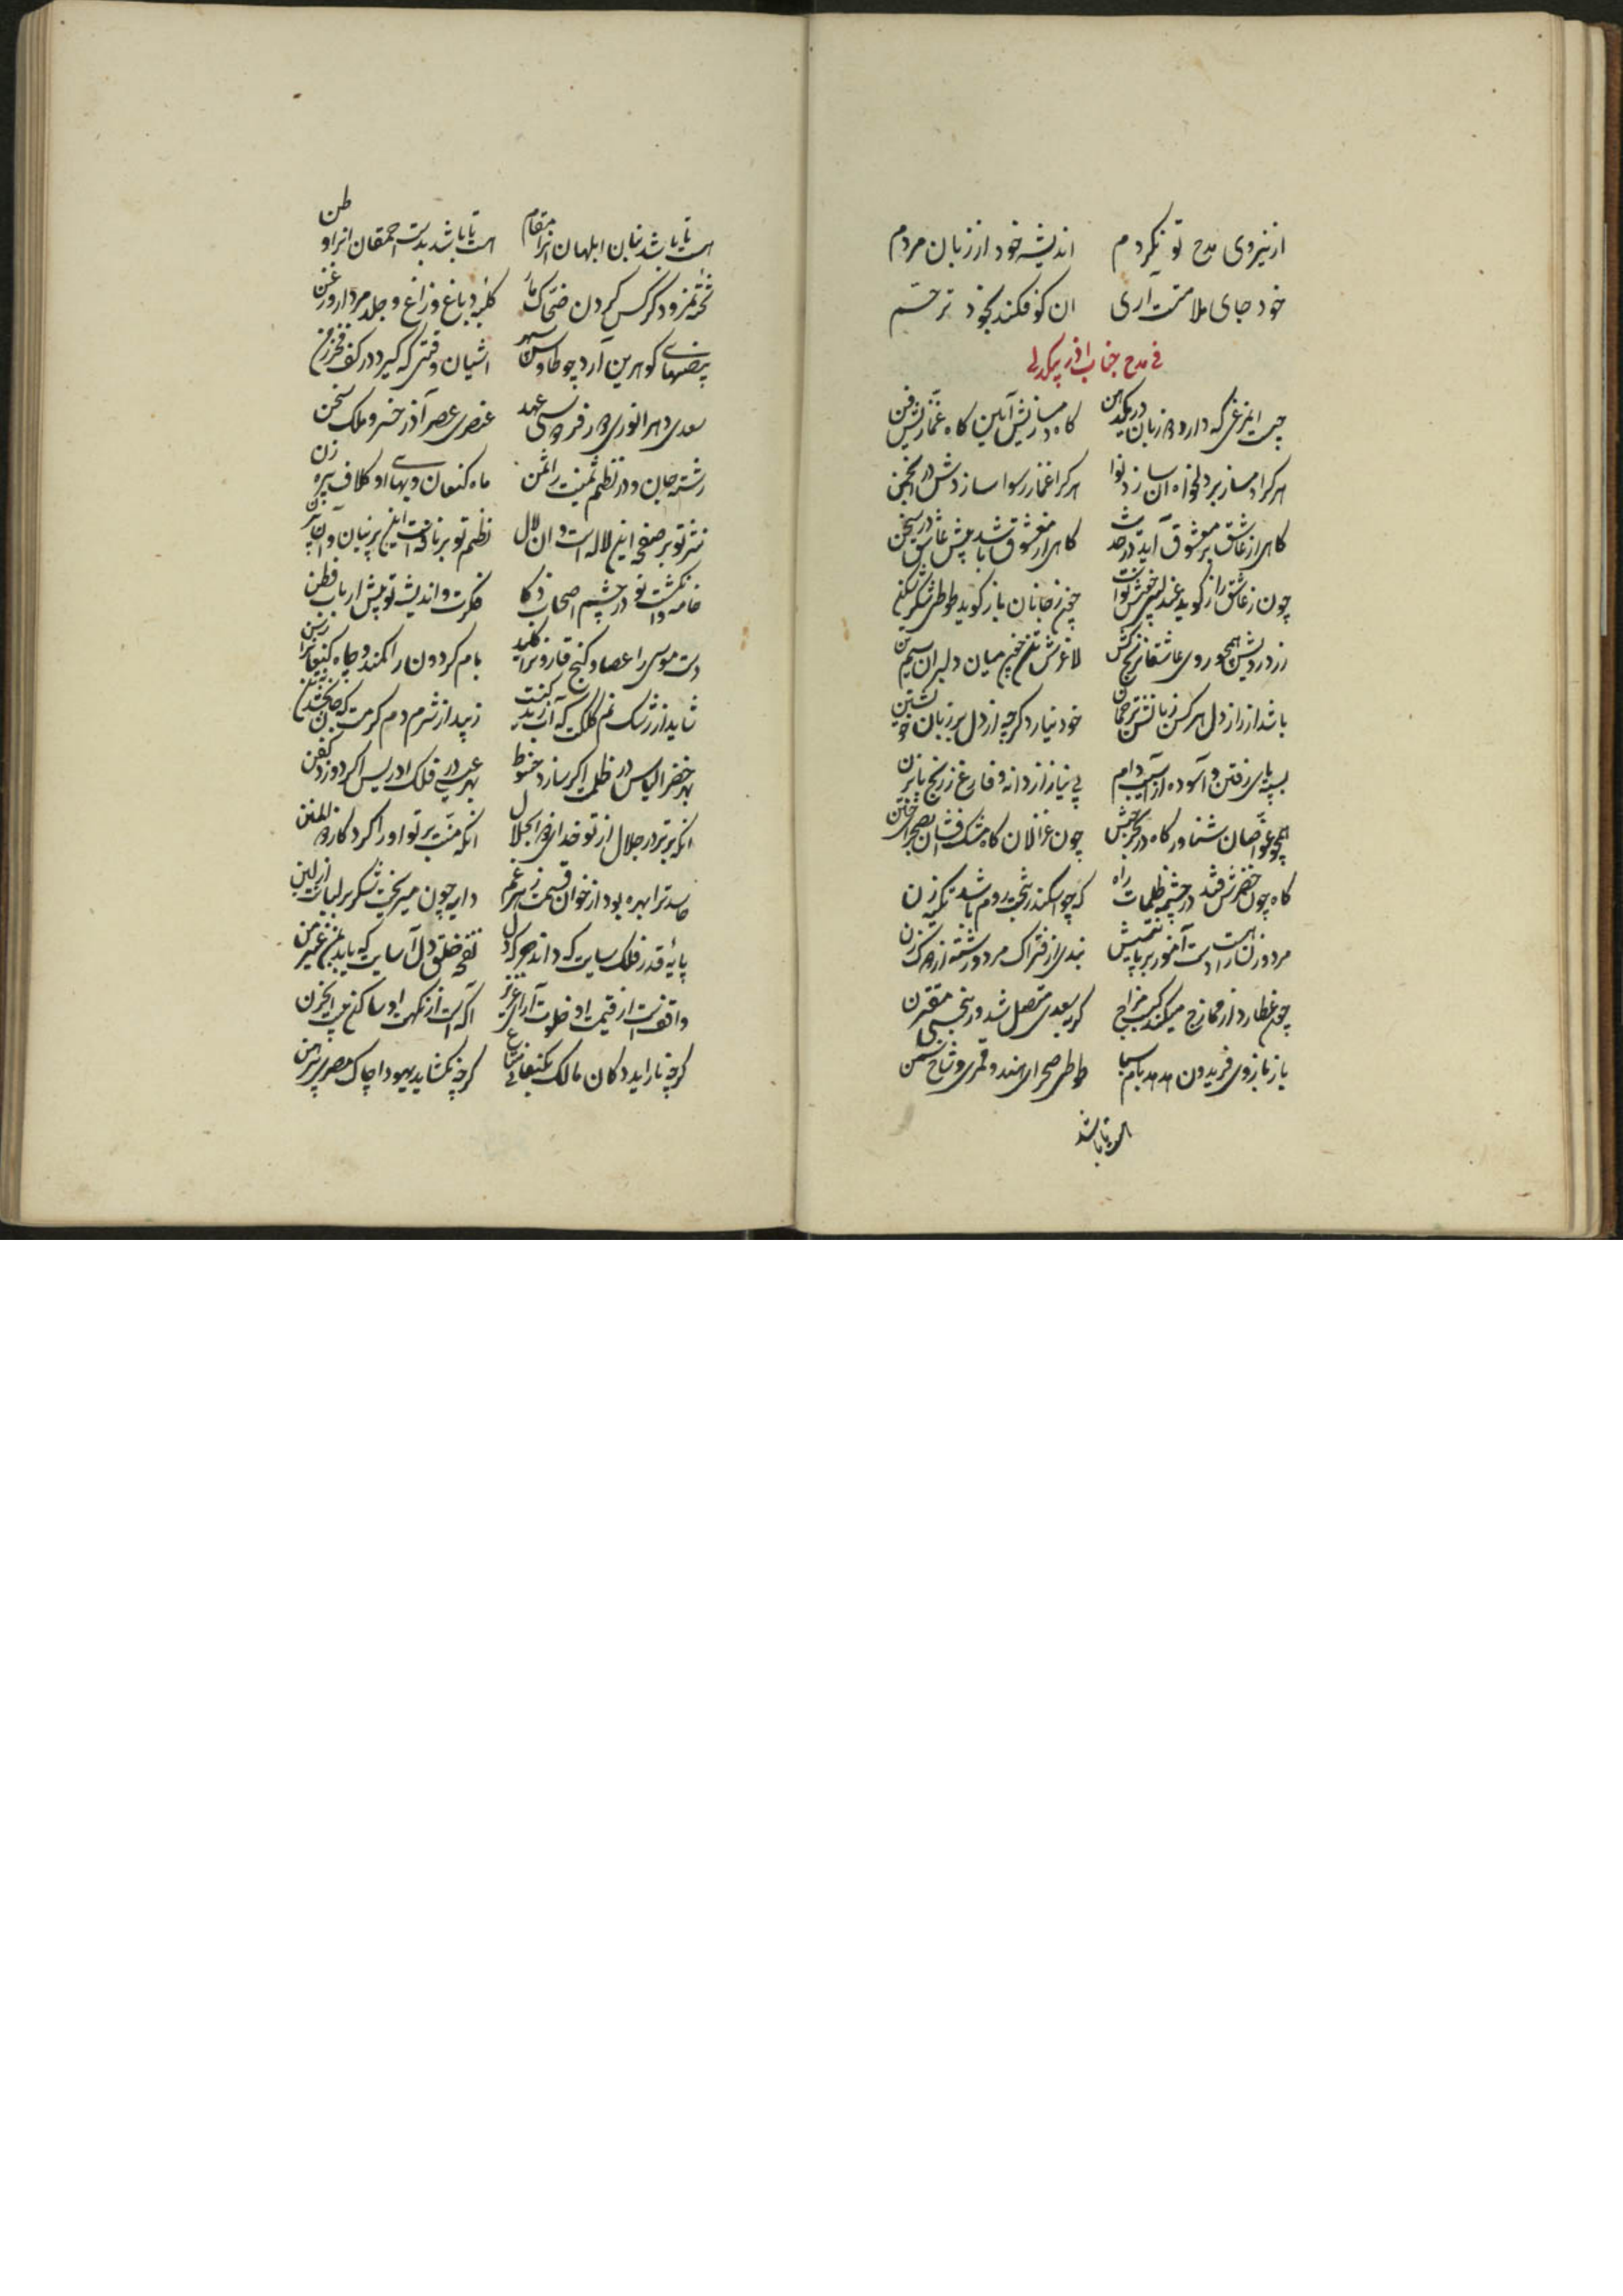 از نیروی مدح تو نکردم اندیشه خود از زبان مردم
خود جای ملامت آری ان کو فکند بخود ترحّم
فی مدح جناب اذر بیکدلی
چیست این مرغی که دارد زبان در یکدهن کاه دمسازیش آیین کاه غمّازیش فن
هرکرا دمساز بر دلخواه ان سازد نوا هرکرا غماز رسوا سازدش در انجمن
کاهی از عاشق بر معشوق آید در حدیث کاهی از معشوق باشد پیش عاشق در سخن
چون ز عاشق راز کوید عندلیبی خوش نوا چون ز جانان باز کوید طوطی شکرشکن
زرد رویش همچو روی عاشقان رنج کش لاغرش تن چون میان دلبران سیم تن
باشد از راز دل هر کس زبانش ترجمان خود نیارد کرچه از دل بر زبان خویشتن
بسته پای رفتن و آسوده از آسیب دام بی نیاز از دانه و فارغ ز رنج بابزن
همچو غوّاصان شناور کاه در بحر حبش چون غزالان کاه مشک افشان بصحرای ختن
کاه چون خضرش فتد در چشمه ظلمات راه که چو اسکندر بتخت روم باشد تکیه زن
مرد و زن را دست آموز
چون عطارد از ممازج میکند کسب مزاج کر بسعدی متصل شد ور بنحسی مقترن
باز بازوی فریدون هدهد بام سبا طوطی صحرای هند و قمری و شاخ سمن
است تا باشد
است تا باشد بنان ابلهان انرا مقام است تا باشد بدست احمقان انرا وطن
تخته نمرود کرکس کردن ضحاک مار کلبه دباغ و زاغ و جلد مردار و زغن
بیضهای کوهرین آرد چو طاوس سپهر اشیان وقتی که کیرد در کف فخر زمن
سعدی دهر انوری فردوسی عهد عنصری عصر آذر خسرو ملک سخن
رشته جان و در نظم ثمینت را ثمن ماه کنعان و بهای او کلاف پیره زن
نثر تو بر صفحه این لاله است و ان لال نظم تو بر نافه است این پرنیان و آن
خامه و انکشت تو در چشم اصحاب ذکا فکرت و اندیشه تو پیش ارباب فطن
دست موسی را عصا و کنج قارون را کلید بام کردون را کمند و چاه کنعان را رسن
شاید از رشک نم کلکت که آب زیبد از شرم دم کرمت که
بهر خضر الیاس در ظلمت اکر سازد حنوط بهر عیسی در فلک ادریس اکر دوزد کفن
انکه برتر در جلال از تو خدای ذو الجلال انکه منت بر تو او را کردکار ذو المنن
حاسدت را بهره بود از خوان قسمت زهر غم دایه چون میریخت شکر بر لبانت از لبن
پایه قدر فلک سایت که داند نفحه خلق دل آسایت که یابد
واقفست از قیمت او خلوت آرای عزیز آکه است از نکهت او ساکن بیت الحزن
کرچه ناراید دکان مالک بکنعانی متاع کرچه نکشاید یهودا چاک مصر پیرهن